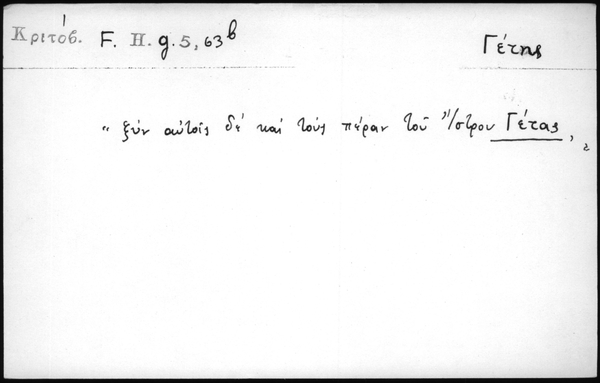 Κριτόβ. F. H. g. 5, 63 b
Γέτης
“ ξὺν αὐτοῖς δέ καί τούς πέραν τοῦ Ἴστρου Γέτας „